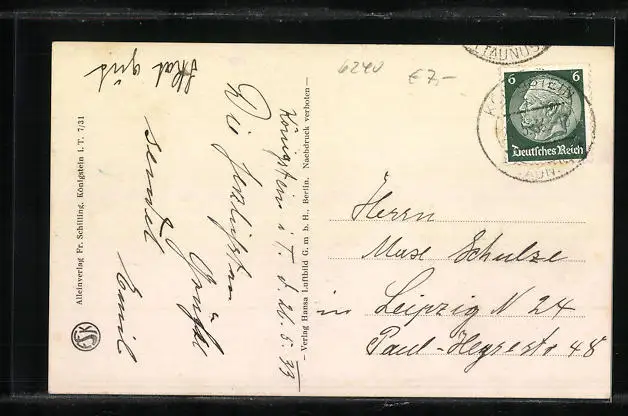 Skat gut
Königstein i. T. d. 26. 5. 33
Die herzlichsten
Grüße
sendet
Emil
Alleinverlag Fr. Schilling, Königstein i. T. 7/31
– Verlag Hansa Luftbild G. m. b. H., Berlin. Nachdruck verboten –
6240
€ 7,-
(TAUNUS)
6 6
Deutsches Reich
Herrn
Max Schulze
in Leipzig N 24
Paul-Heysestr 48